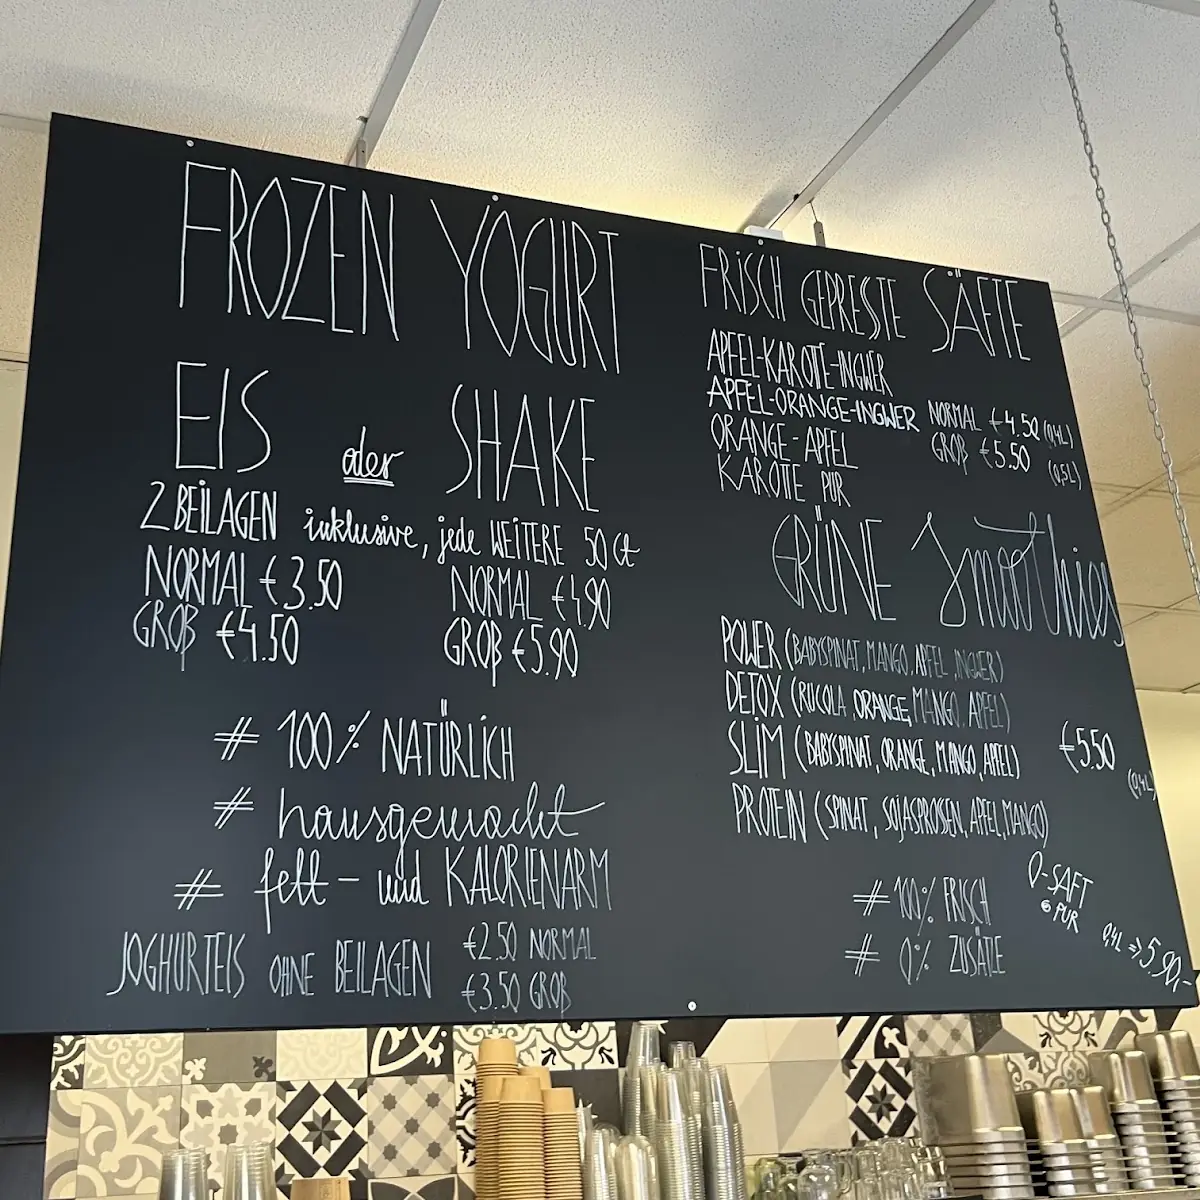 FROZEN YOGURT
EIS oder SHAKE
2 BEILAGEN inklusive, jede WEITERE 50 Ct
NORMAL €3.50 NORMAL €4.90
GROß €4.50 GROß €5.90
# 100% NATÜRLICH
# hausgemacht
# fett- und KALORIENARM
JOGHURTEIS OHNE BEILAGEN €2.50 NORMAL
€3.50 GROß
FRISCH GEPRESSTE SÄFTE
APFEL-KAROTTE-INGWER
APFEL-ORANGE-INGWER NORMAL €4.50 (0,4L)
ORANGE-APFEL GROß €5.50 (0,5L)
KAROTTE PUR
GRÜNE Smoothies
POWER (BABYSPINAT, MANGO, APFEL, INGWER)
DETOX (RUCOLA, ORANGE, MANGO, APFEL)
SLIM (BABYSPINAT, ORANGE, MANGO, APFEL) €5.50
(0,4L)
PROTEIN (SPINAT, SOJASPROSSEN, APFEL, MANGO)
# 100% FRISCH
# 0% ZUSÄTZE
O-SAFT
PUR
0,4L => 5.90,-